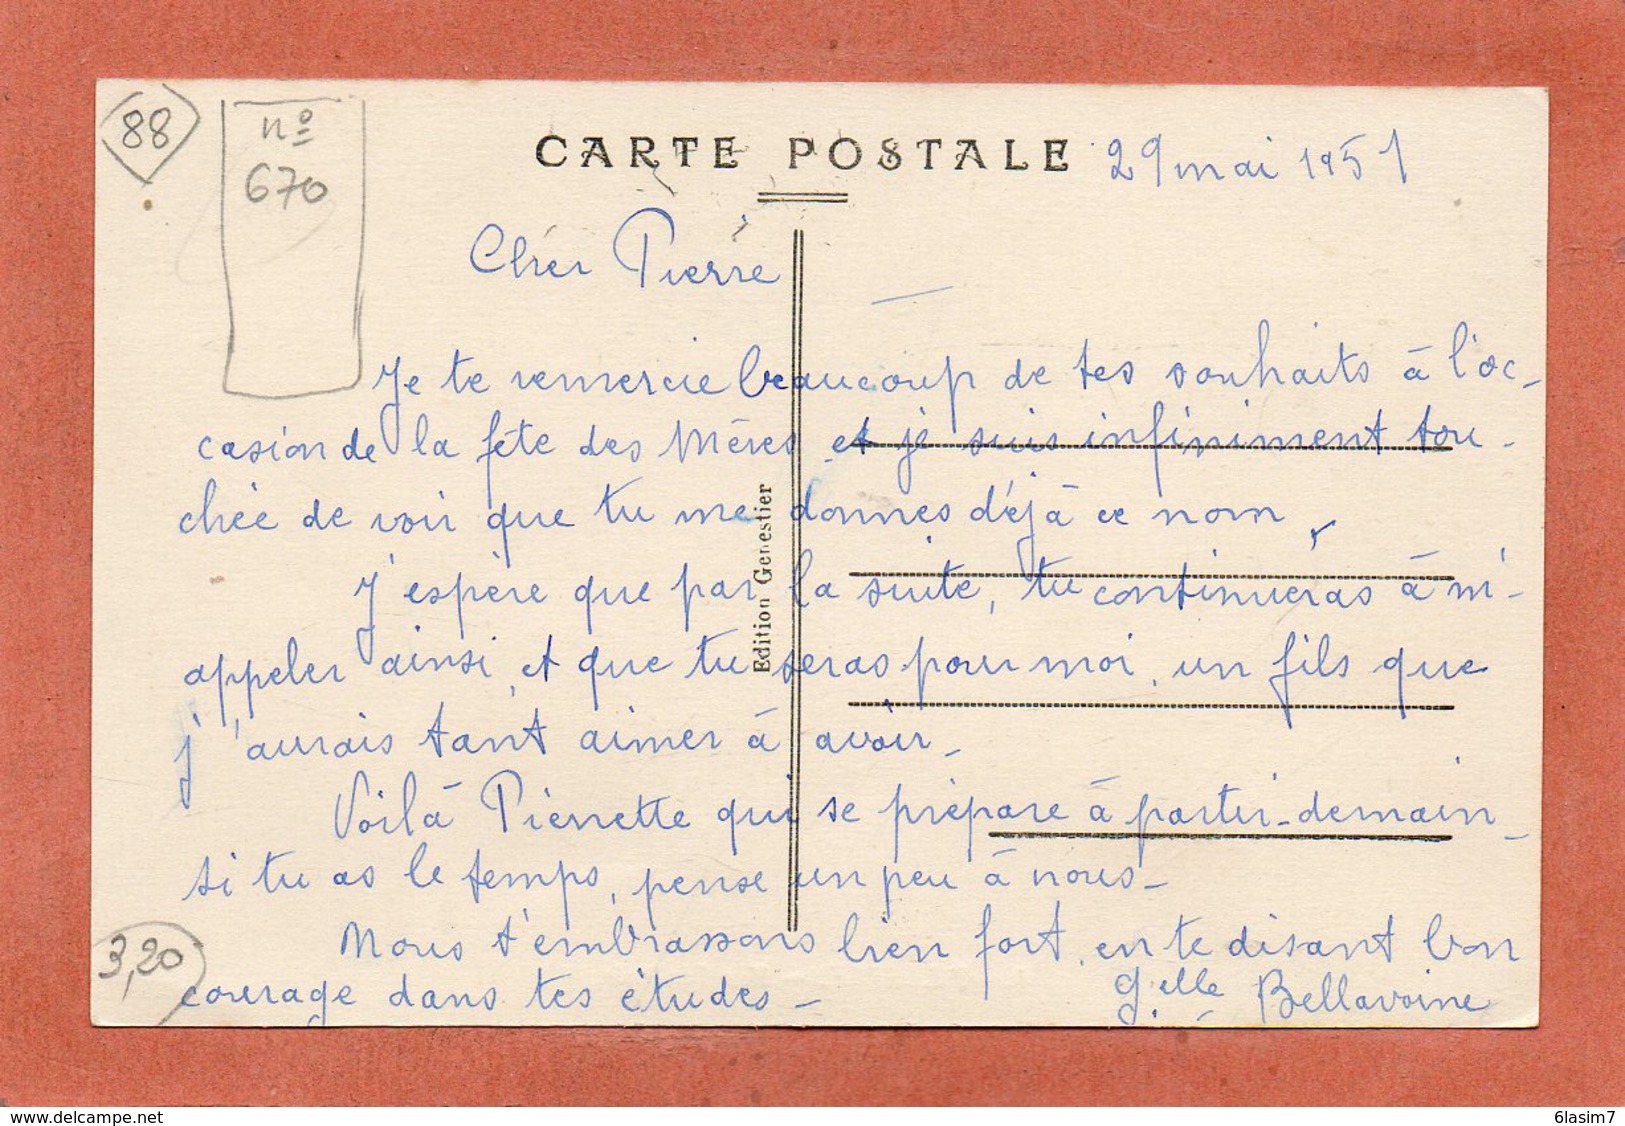 88
nº
670
CARTE POSTALE
29 mai 1951
Cher Pierre
Je te remercie beaucoup de tes souhaits à l'oc-
casion de la fête des Mères et je suis infiniment tou-
chée de voir que tu me donnes déjà ce nom.
J'espère que par la suite, tu continueras à m'-
appeler ainsi, et que tu seras pour moi, un fils que
j'aurais tant aimer à avoir_
Voilà Pierrette qui se prépare à partir demain_
si tu as le temps, pense un peu à nous_
Nous t'embrassons bien fort, en te disant bon
courage dans tes études_
G.elle Bellavoine
Edition Genestier
3,20
www.delcampe.net
6lasim7